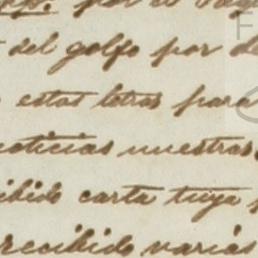 por el
del golfo por
estas letras para
noticias nuestras.
cibido carta tuya
recibido varias